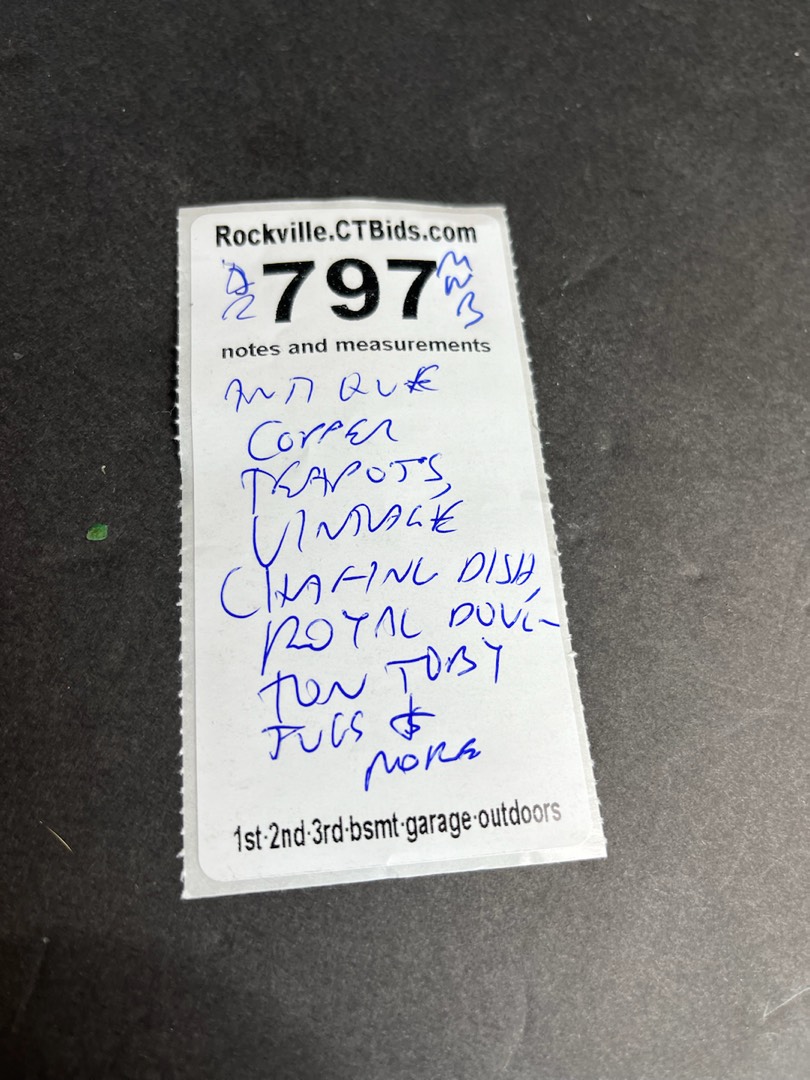 Rockville.CTBids.com
797
notes and measurements
ANTIQUE
COPPER
TEAPOTS,
VINTAGE
CHAFING DISH,
ROYAL DOUL-
TON TOBY
JUGS &
MORE
1st·2nd·3rd·bsmt·garage·outdoors